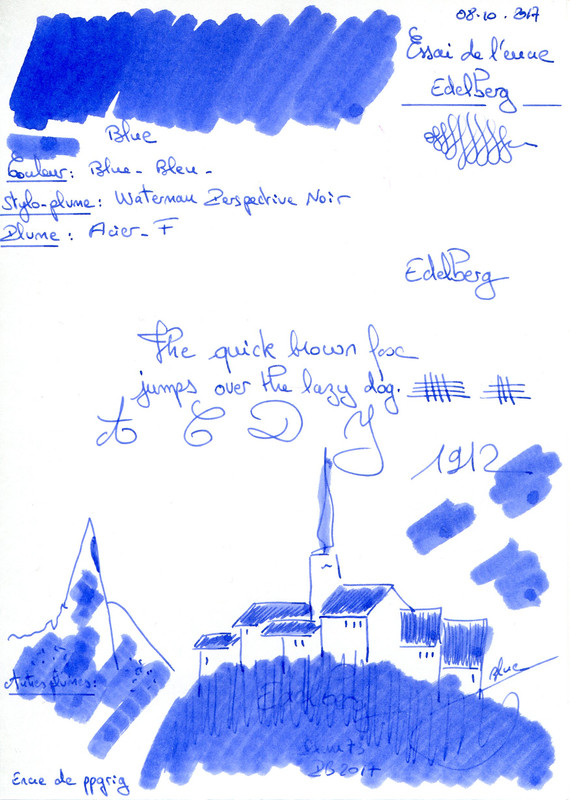 08.10.2017
Essai de l'encre
EdelBerg
Blue
Couleur: Blue - Bleu -
Stylo-plume: Waterman Perspective Noir
Plume: Acier - F
EdelBerg
The quick brown fox
jumps over the lazy dog.
A C D Y
1912
Blue
Autres plumes:
DB 2017
Encre de ppgrig